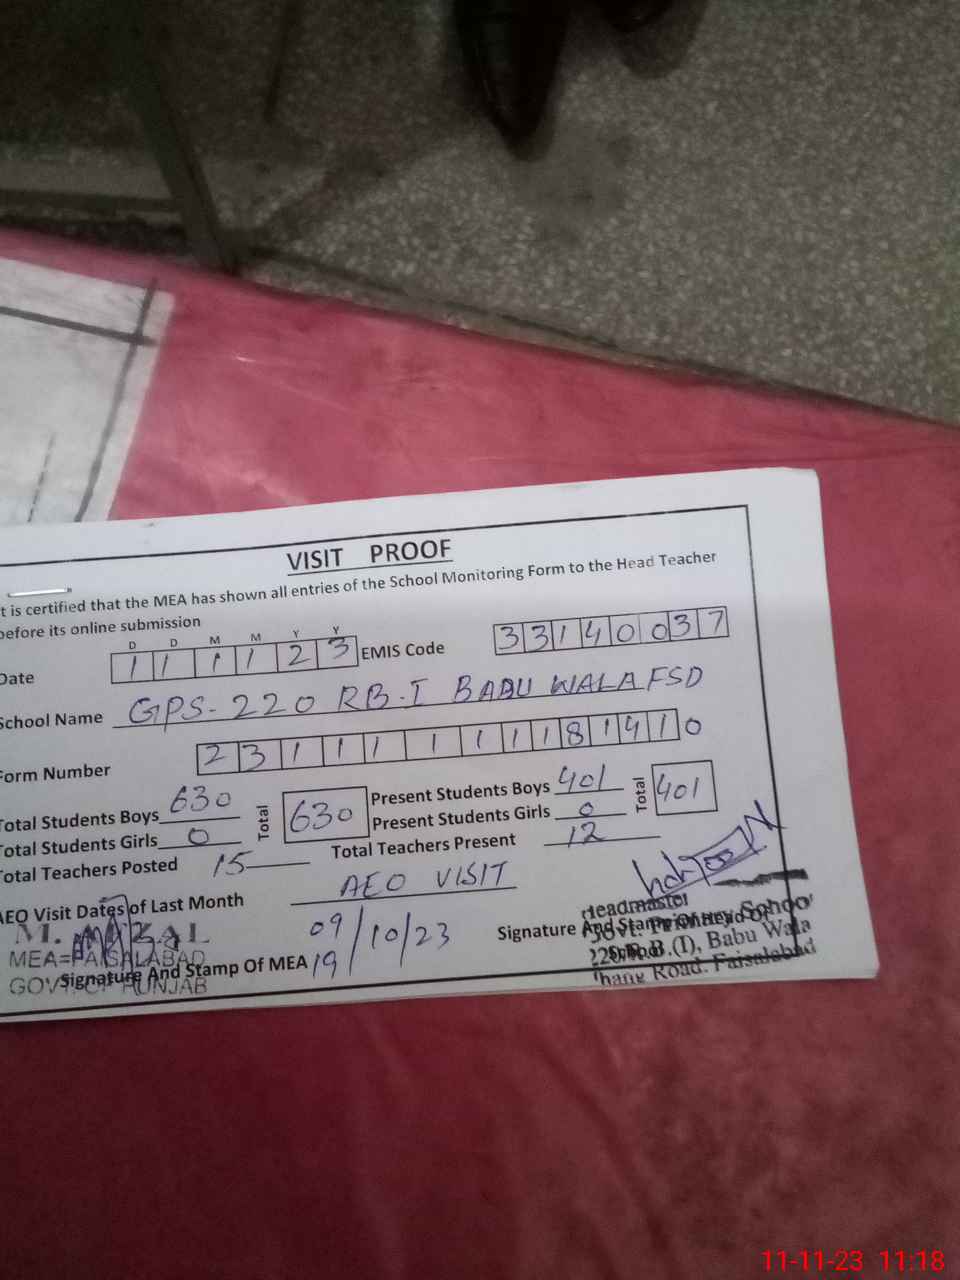 VISIT PROOF
t is certified that the MEA has shown all entries of the School Monitoring Form to the Head Teacher
before its online submission
D D M M Y Y
Date 1 1 1 1 2 3 EMIS Code 3 3 1 4 0 0 3 7
School Name GPS-220 RB-I BABU WALA FSD
Form Number 2 3 1 1 1 1 1 1 1 8 1 4 1 0
Total Students Boys 630 Total 630 Present Students Boys 401 Total 401
Total Students Girls 0 Present Students Girls 0
Total Teachers Posted 15 Total Teachers Present 12
AEO Visit Dates of Last Month AEO VISIT
09/10/23
19
Signature And Stamp Of MEA
M.
MEA=FAISALABAD
GOVT. OF PUNJAB
Signature And Stamp Of Head Of
School
Headmaster
Govt. Primary School
220 R.B.(I), Babu Wala
Jhang Road. Faisalabad
11-11-23 11:18